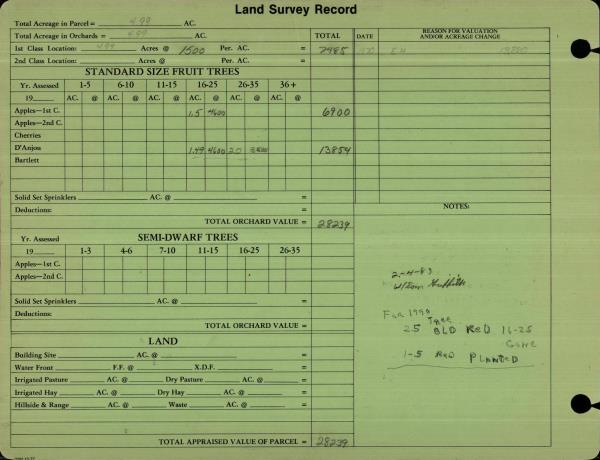 Land Survey Record
Total Acreage in Parcel = 4.99 AC.
Total Acreage in Orchards = 4.99 AC. TOTAL DATE REASON FOR VALUATION AND/OR ACREAGE CHANGE
1st Class Location: 4.99 Acres @ 1500 Per. AC. = 7485
2nd Class Location: Acres @ Per. AC. =
STANDARD SIZE FRUIT TREES
Yr. Assessed 1-5 6-10 11-15 16-25 26-35 36+
19 AC. @ AC. @ AC. @ AC. @ AC. @ AC. @
Apples—1st C. 1.5 4600 6900
Apples—2nd C.
Cherries
D'Anjou 1.49 4600 2.0 13854
Bartlett
Solid Set Sprinklers AC. @ =
Deductions: = NOTES:
TOTAL ORCHARD VALUE = 28239
Yr. Assessed SEMI-DWARF TREES
19 1-3 4-6 7-10 11-15 16-25 26-35
Apples—1st C.
Apples—2nd C. 2-4-83
Solid Set Sprinklers AC. @ =
Deductions: For 1990
TOTAL ORCHARD VALUE = 25 Tree OLD RED 16-25
LAND Gone
Building Site AC. @ = 1-5 RED PLANTED
Water Front F.F. @ X.D.F. =
Irrigated Pasture AC. @ Dry Pasture AC. @ =
Irrigated Hay AC. @ Dry Hay AC. @ =
Hillside & Range AC. @ Waste AC. @ =
TOTAL APPRAISED VALUE OF PARCEL = 28239